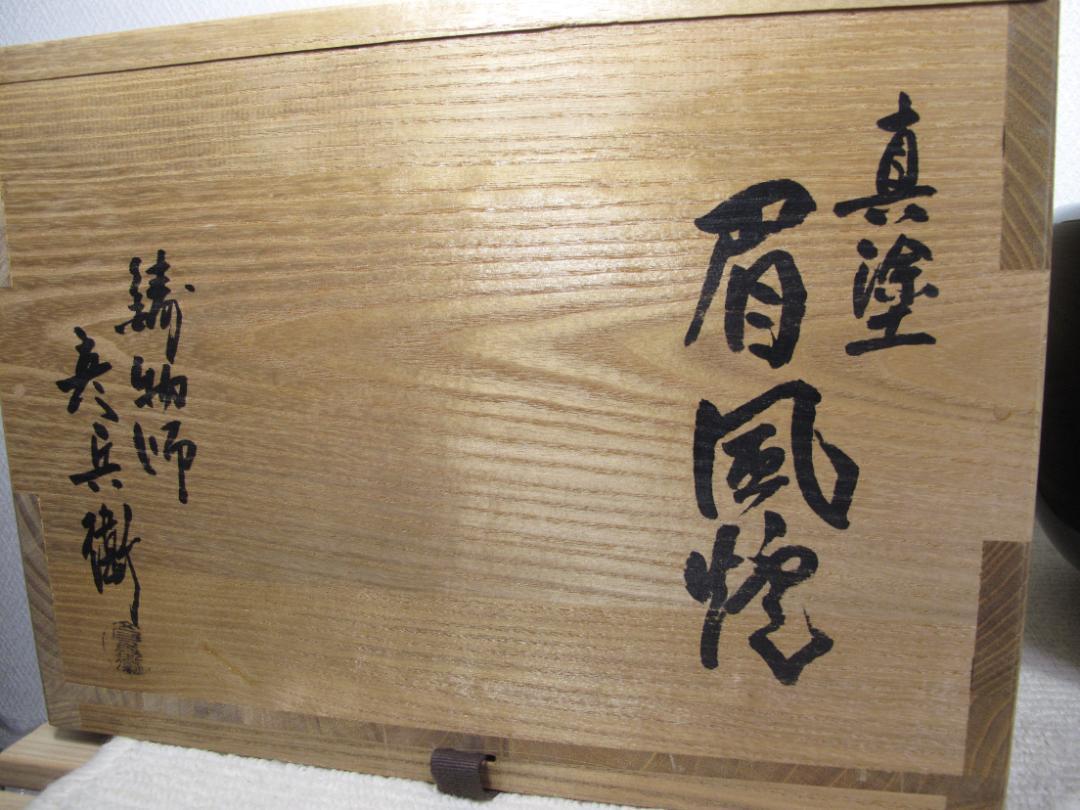 真塗
眉風爐
鋳物師
彦兵衛